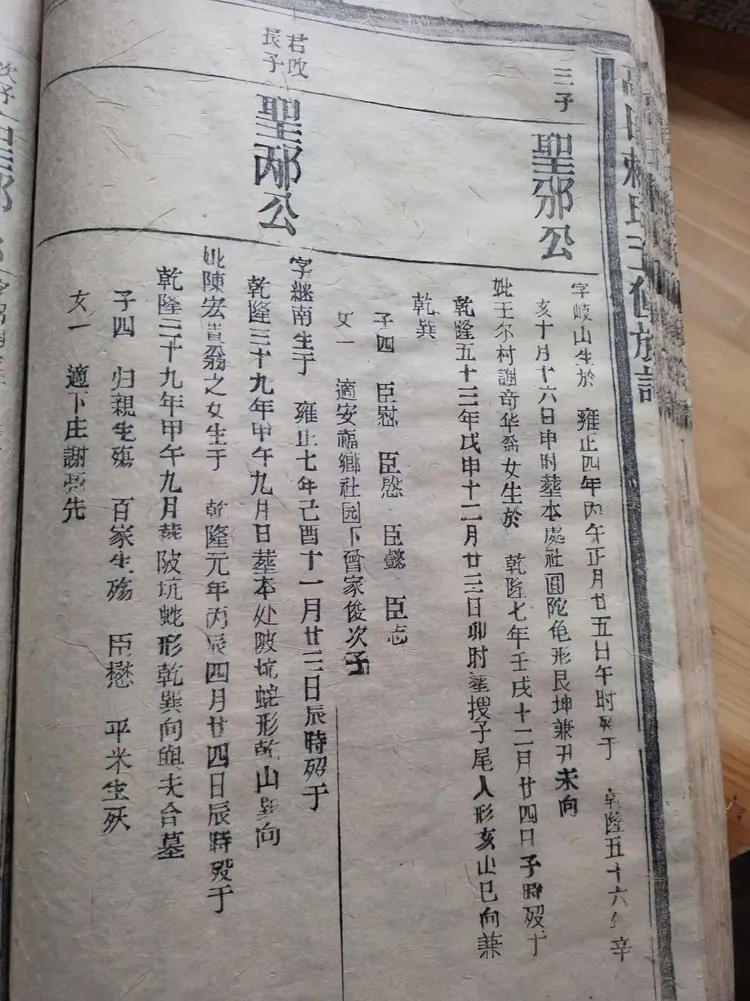 三子
聖邪公
字岐山生於 雍正四年丙午正月廿五日午时歿于 乾隆五十六年辛
亥十月十六日申时塟本處社圓陀龟形艮坤兼丑未向
妣王尔村謝奇华翁女生於 乾隆七年壬戌十二月廿四日子時歿于
乾隆五十三年戊申十二月廿三日卯时塟搜子尾人形亥山巳向兼
乾巽
子四 臣慰 臣慜 臣懿 臣志
女一 適安福鄉社园下曾家俊次子
君改
長子
聖邴公
字继南生于 雍正七年己酉十一月廿二日辰時歿于
乾隆三十九年甲午九月日塟本处陂坑蛇形乾山巽向
妣陳宏 翁之女生于 乾隆元年丙辰四月廿四日辰時歿于
乾隆三十九年甲午九月塟陂坑蛇形乾巽向與夫合墓
子四 归親生殤 百家生殤 臣懋 平米生殀
女一 適下庄謝 先